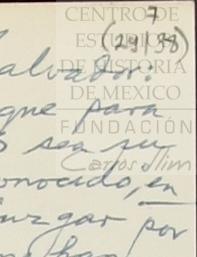 7
(29/38)
CENTRO DE
ESTUDIOS
DE HISTORIA
DE MEXICO
FUNDACIÓN
Carlos Slim
alvador:
que para
sea su
onocido, en
urgar por